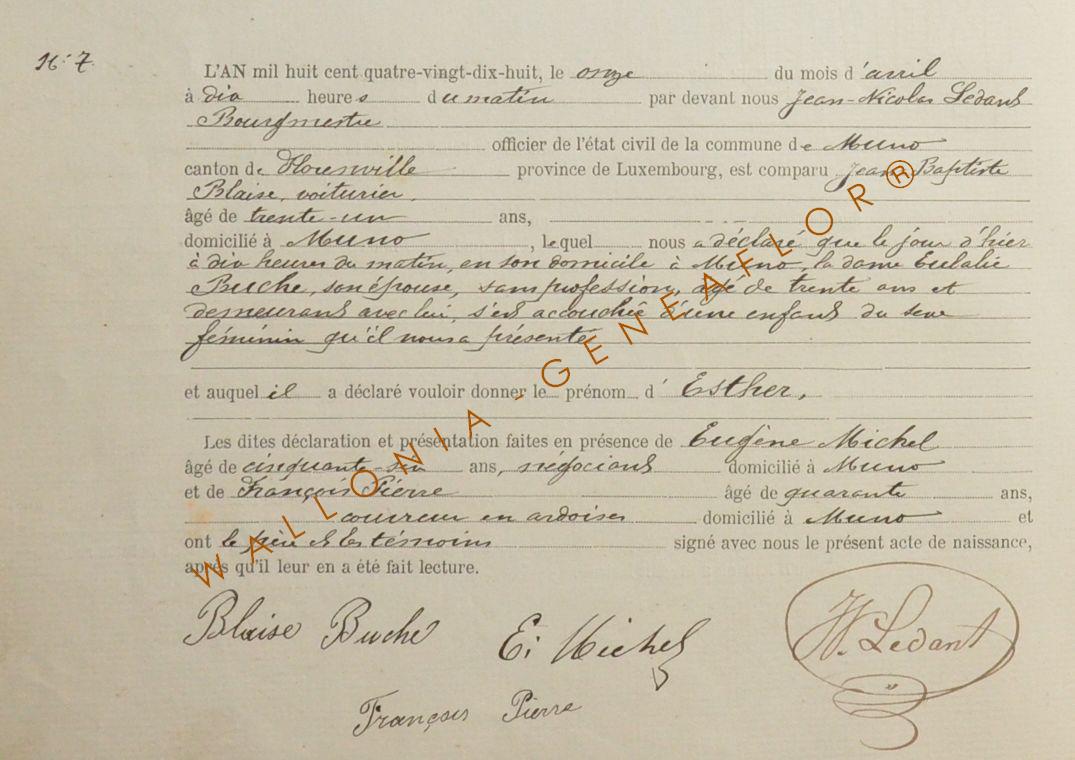 N° 7.
L'AN mil huit cent quatre-vingt-dix-huit, le onze du mois d'avril
à dix heures du matin par devant nous Jean-Nicolas Ledant
Bourgmestre
officier de l'état civil de la commune de Muno
canton de Florenville province de Luxembourg, est comparu Jean Baptiste
Blaise, voiturier,
âgé de trente-un ans,
domicilié à Muno, lequel nous a déclaré que le jour d'hier
à dix heures du matin, en son domicile à Muno, la dame Eulalie
Buche, son épouse, sans profession, âgé de trente ans et
demeurant avec lui, s'est accouchée d'une enfant du sexe
féminin qu'il nous a présenté
et auquel il a déclaré vouloir donner le prénom d'Esther,
Les dites déclaration et présentation faites en présence de Eugène Michel
âgé de cinquante-six ans, négociant domicilié à Muno
et de François Pierre âgé de quarante ans,
couvreur en ardoises domicilié à Muno et
ont le père et les témoins signé avec nous le présent acte de naissance,
après qu'il leur en a été fait lecture.
Blaise Buche E: Michel N. Ledant
François Pierre
WALLONIA - GENEAFLOR®